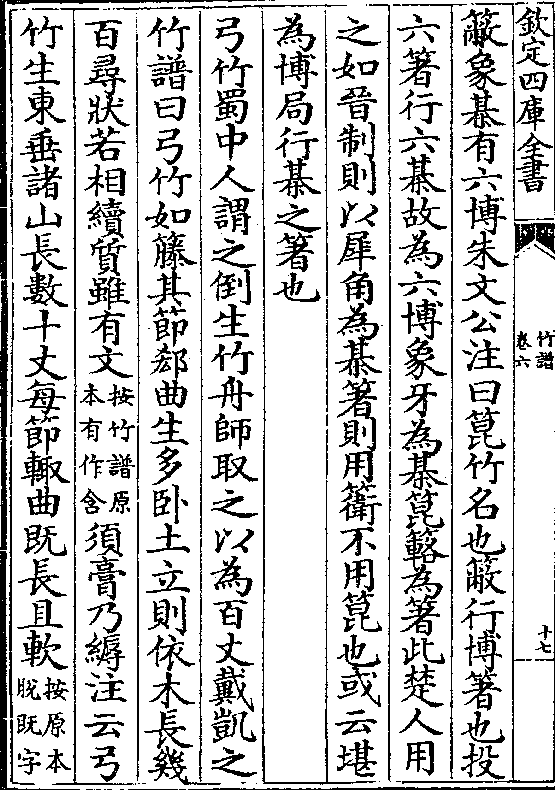 欽定四庫全書
竹譜
卷六
十七
蔽象棊有六博朱文公注曰箟竹名也蔽行博箸也投
六箸行六棊故為六博象牙為棊箟簵為箸此楚人用
之如晉制則以犀角為棊箸則用籌不用箟也或云堪
為博局行棊之箸也
弓竹蜀中人謂之倒生竹舟師取之以為百丈戴凱之
竹譜曰弓竹如籐其節郄曲生多卧土立則依木長幾
百尋狀若相續質雖有文按竹譜原本有作含須膏乃縟注云弓
竹生東垂諸山長數十丈每節輙曲既長且軟按原本脱既字